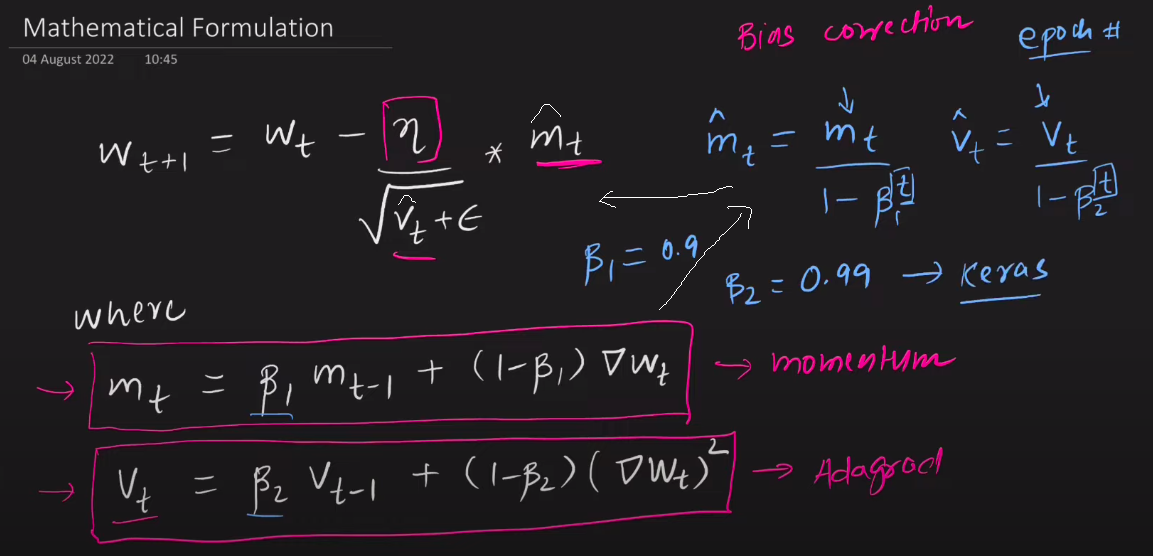 Mathematical Formulation
04 August 2022 10:45
Bias correction epoch #
w_{t+1} = w_t − η / √(v̂_t + ϵ) * m̂_t
m̂_t = m_t / (1 − β_1^t) v̂_t = v_t / (1 − β_2^t)
β_1 = 0.9
β_2 = 0.99 → Keras
where
→ m_t = β_1 m_{t-1} + (1−β_1) ∇w_t → momentum
→ v_t = β_2 v_{t-1} + (1−β_2)(∇w_t)² → Adagrad